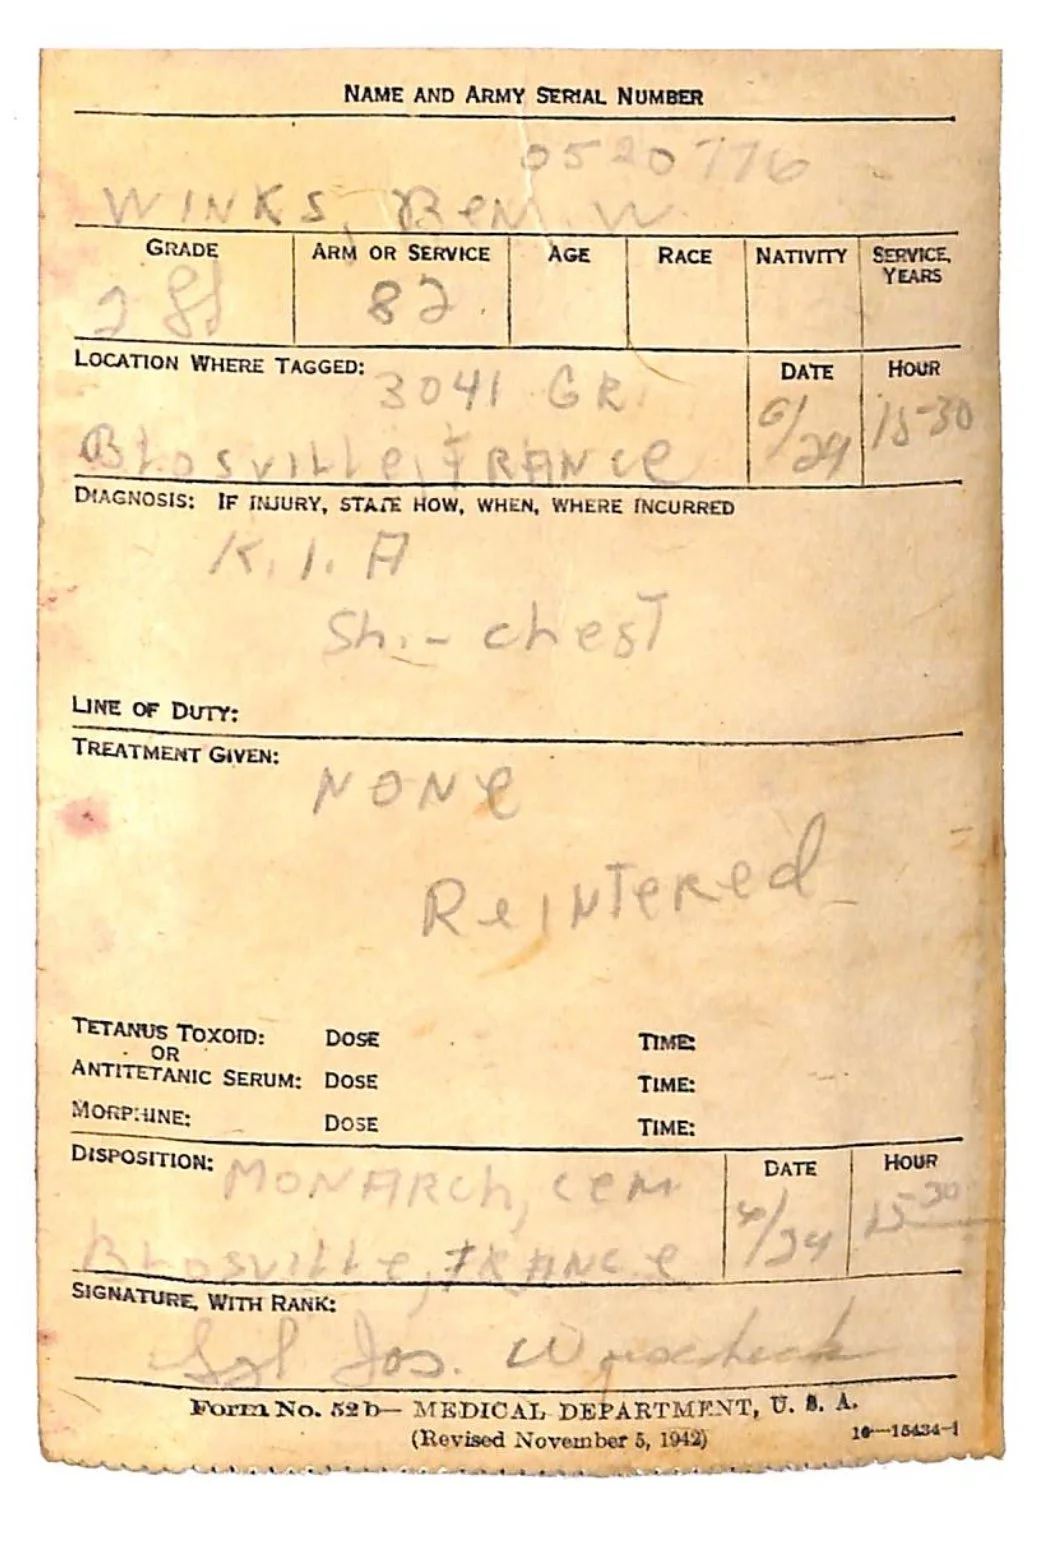 NAME AND ARMY SERIAL NUMBER
0520776
WINKS, Ben. W.
GRADE ARM OR SERVICE AGE RACE NATIVITY SERVICE, YEARS
2 82
LOCATION WHERE TAGGED: DATE HOUR
3041 GR. 6/29 15-30
Blosville, FRANce
DIAGNOSIS: IF INJURY, STATE HOW, WHEN, WHERE INCURRED
K. I. A
Sh. - chest
LINE OF DUTY:
TREATMENT GIVEN:
NONe
ReINTeRed
TETANUS TOXOID: DOSE TIME:
OR
ANTITETANIC SERUM: DOSE TIME:
MORPHINE: DOSE TIME:
DISPOSITION: DATE HOUR
MONARch, ceM 15 30
Blosville, FRANce
SIGNATURE, WITH RANK:
Sgt Jos.
Form No. 52b— MEDICAL DEPARTMENT, U. S. A.
(Revised November 5, 1942) 16—15434-1